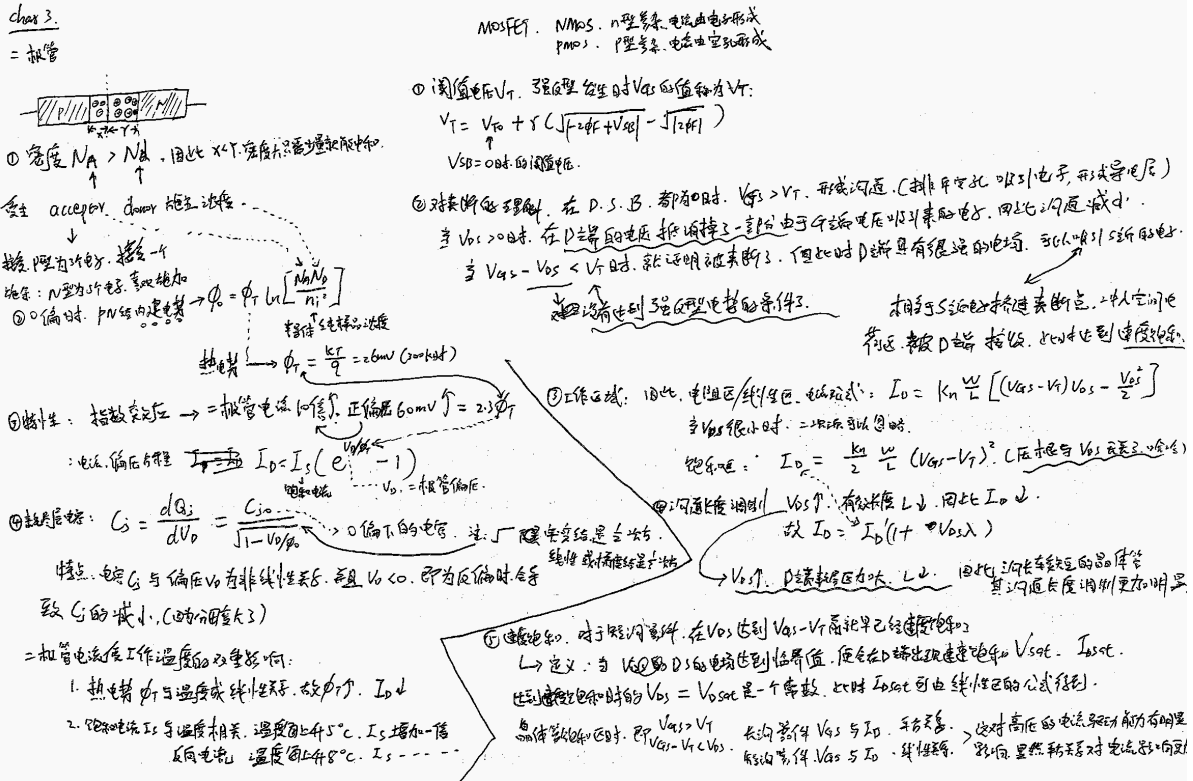 chap 3.
二极管
P N
x Y
① 密度 NA > Nd, 因此 x<Y. 密度大只需少量就能中和.
受主 acceptor donor 施主 浓度
接受: P型为3价电子, 接受一个
施主: N型为5价电子, 喜欢施加
② 0偏时. PN结内建电势 → φ0 = φT ln[NAND/ni²]
热电势 → φT = kT/q = 26mV (300K时)
③ 特性: 指数效应 → 二极管电流10倍↑, 正偏压60mV↑ = 2.3φT
电流,偏压方程 ID = IS(e^VD/φT − 1)
饱和电流 VD, 二极管偏压.
④ 耗尽层电容: Cj = dQj/dVD = Cj0/√(1−VD/φ0) → 0偏下的电容
特点: 电容Cj与偏压VD为非线性关系, 并且VD<0, 即为反偏时, 会导
致Cj的减小.
二极管电流受工作温度的双重影响:
1. 热电势φT与温度成线性关系, 故φT↑, ID↓
2. 饱和电流IS与温度相关, 温度每上升5°C, IS增加一倍
反向电流, 温度每上升8°C, IS ……
MOSFET. NMOS. n型掺杂, 电流由电子形成
PMOS. P型掺杂, 电流由空孔形成
① 阈值电压VT. 强反型发生时VGS的值称为VT:
VT = VT0 + γ(√|−2φF+VSB| − √|2φF|)
VSB=0时的阈值电压.
② 在D.S.B.都为0时. VGS>VT. 形成沟道. (排斥空孔 吸引电子, 形成导电层)
当VDS>0时. 在D端的电压抵消掉了一部分由于G端电压吸引来的电子, 因此沟道减小.
当VGS−VDS<VT时. 就证明被夹断了. 但此时D端具有很强的电场, 可以吸引S端的电子.
没有达到强反型电势的条件了.
相当于S端电子接近夹断点, 注入空间电
荷区, 被D端接收, 此时达到速度饱和.
③ 工作区域: 因此, 电阻区/线性区, 电流公式: ID = Kn W/L [(VGS−VT)VDS − VDS²/2]
当VDS很小时. 二次项可以忽略.
饱和区: ID = Kn/2 W/L (VGS−VT)².
④ 沟道长度调制 VDS↑. 有效长度L↓. 因此ID↓.
故 ID = ID'(1+VDSλ)
VDS↑. D端耗尽区加大. L↓. 因此, 沟长较短的晶体管
其沟道长度调制更加明显
⑤ 速度饱和. 对于短沟器件, 在VDS达到VGS−VT前就早已经速度饱和了
→ 定义: 当DS的电场达到临界值, 便会在D端出现速度饱和 Vsat. IDsat.
达到速度饱和时的VDS = VDsat是一个常数. 此时IDsat可由线性区的公式得到.
晶体管饱和区时, 即 VGS>VT VGS−VT<VDS.
长沟器件 VGS与ID 平方关系
短沟器件. VGS与ID. 线性关系.